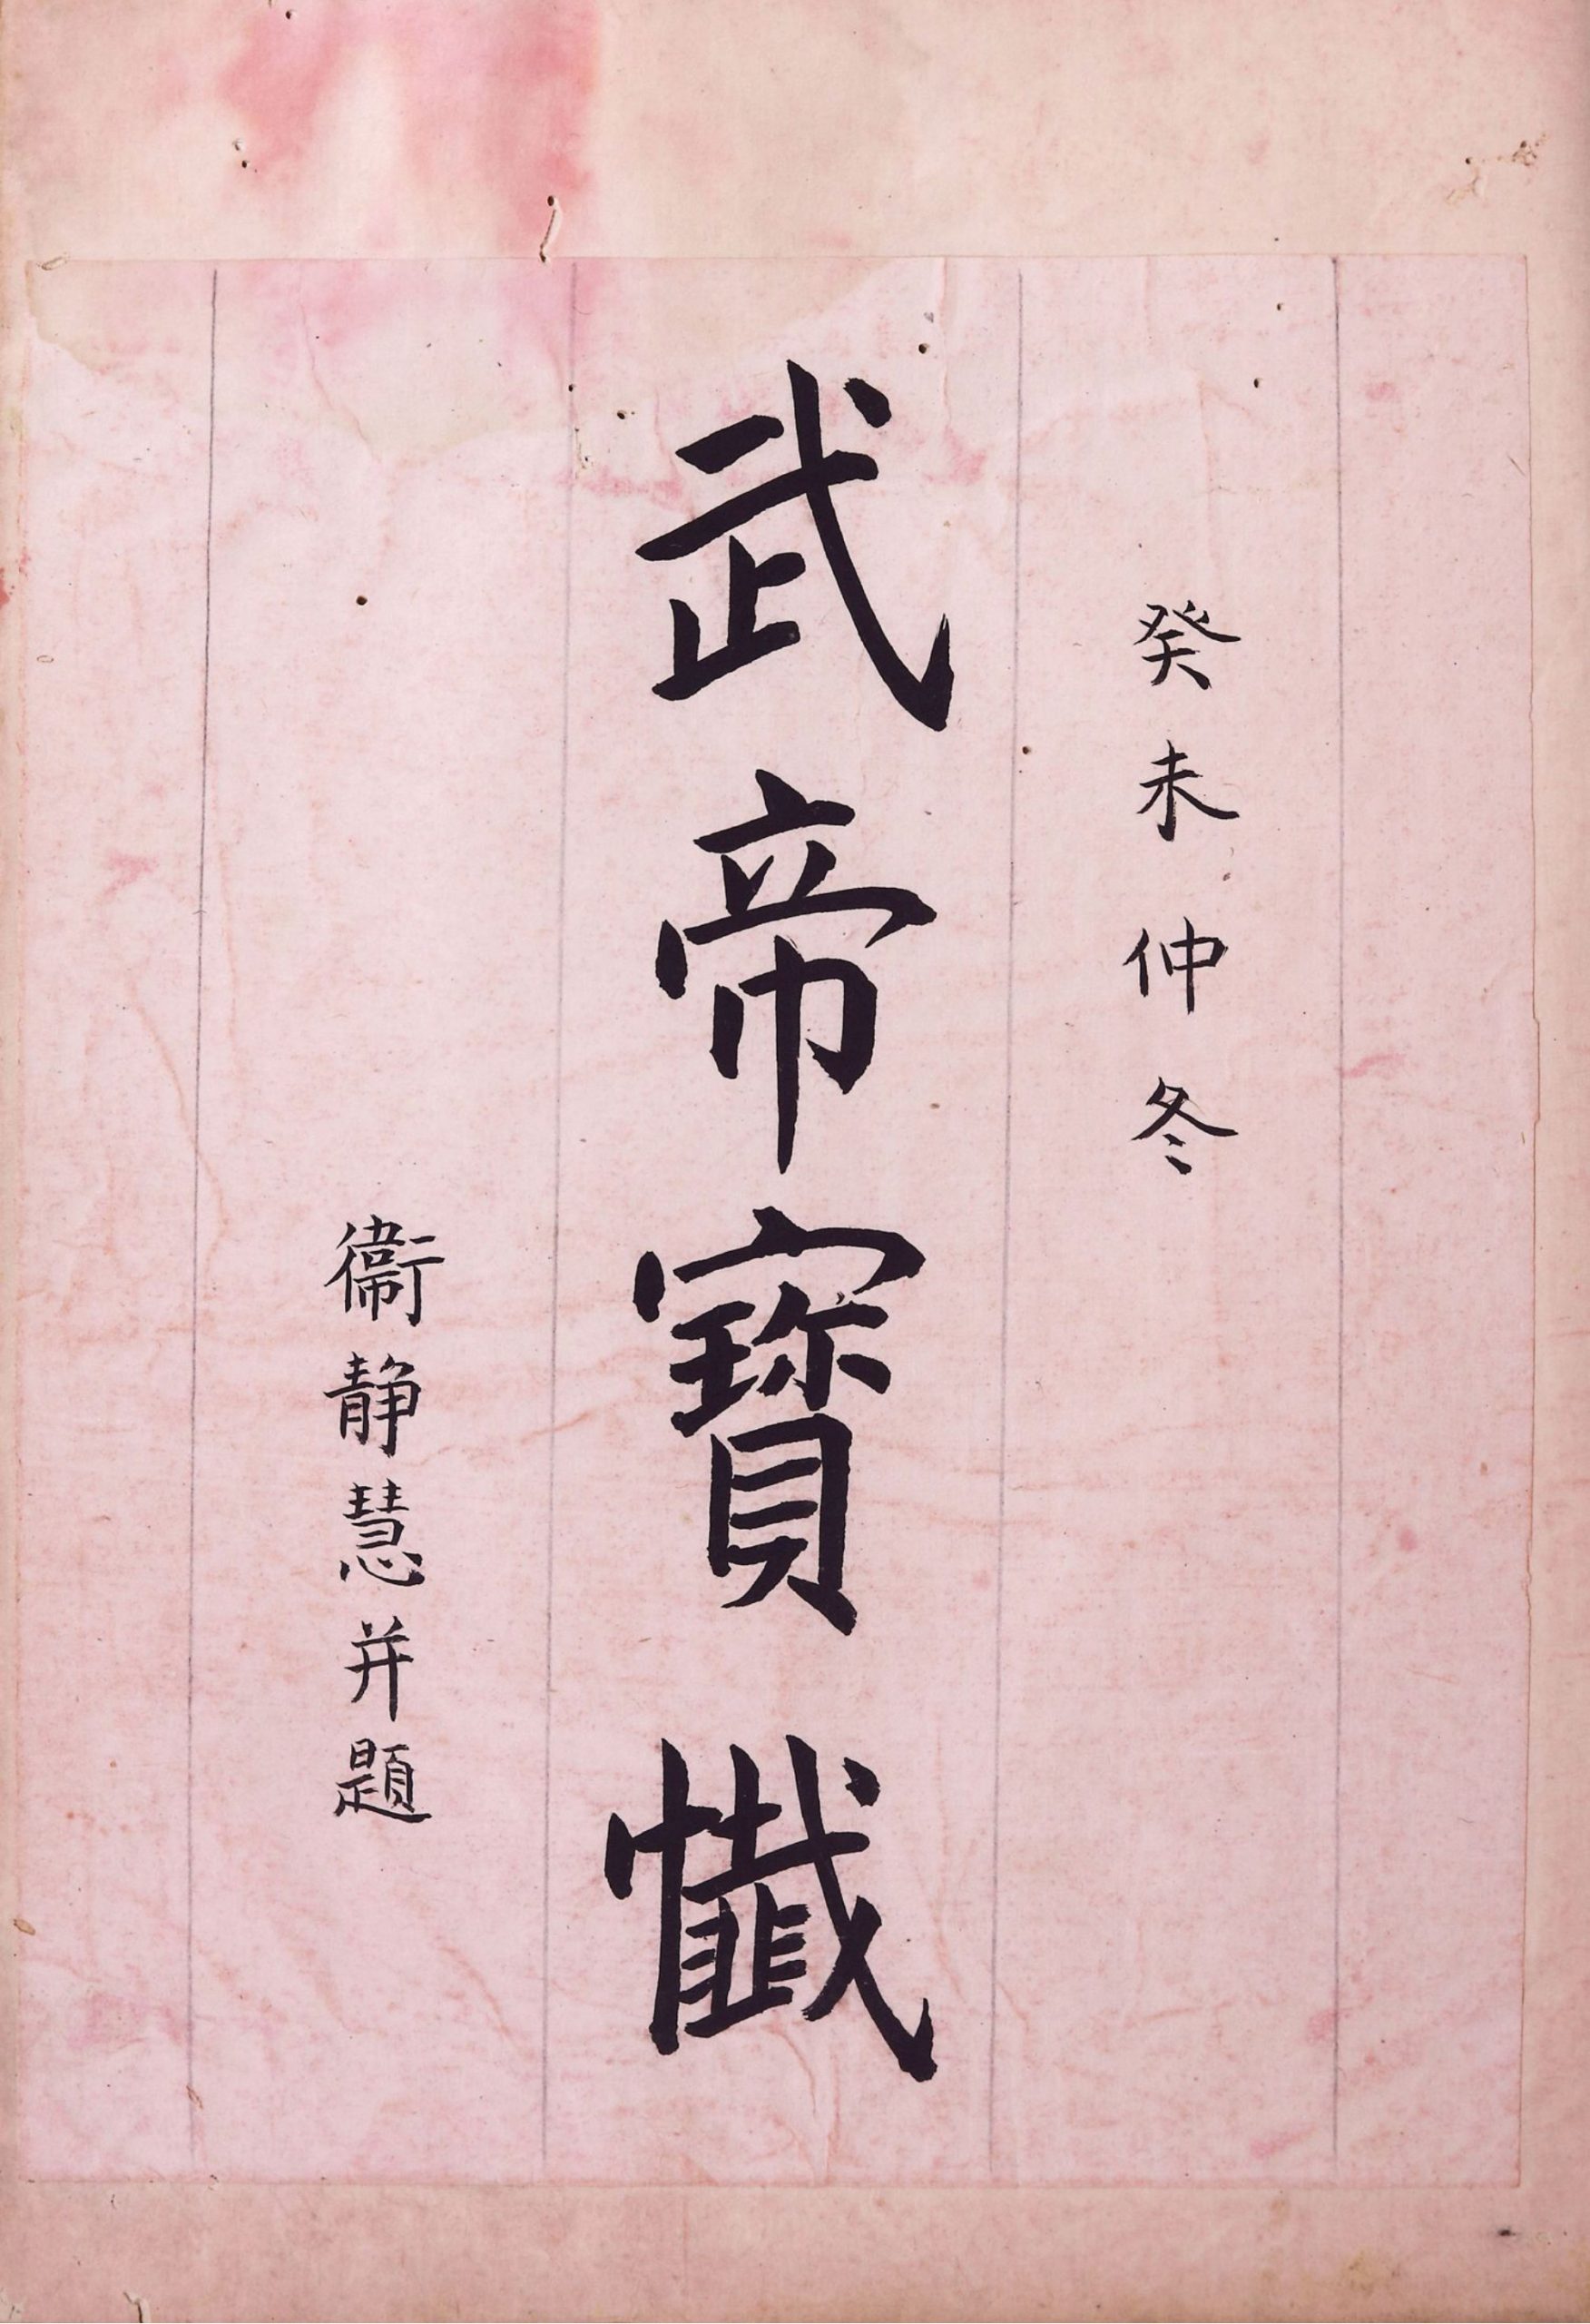 癸未仲冬
武帝寶懺
衞静慧并題